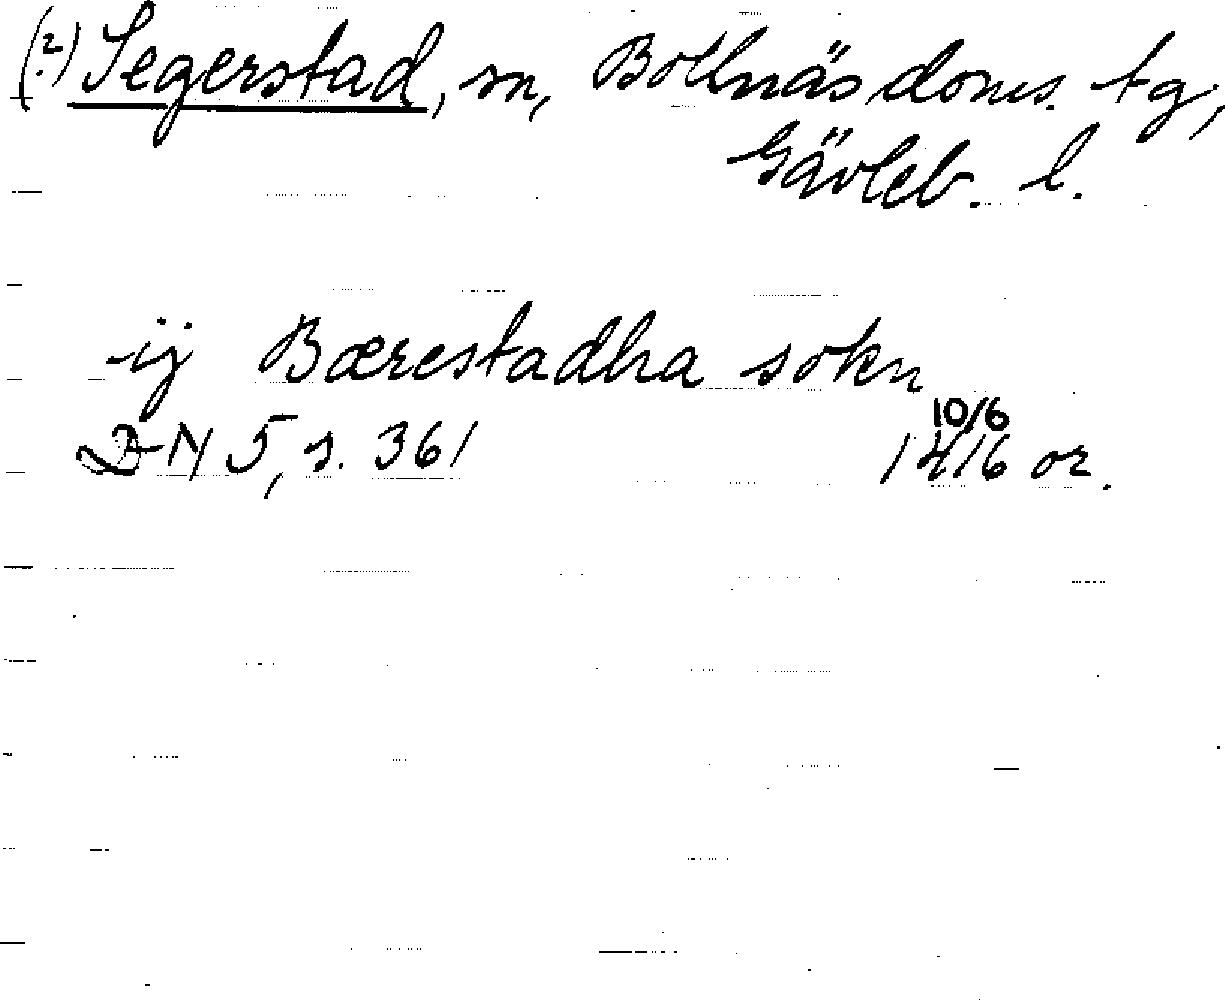 (?) Segerstad, sn, Bollnäs doms. tg,
Gävleb. l.
ij Bærestadha sokn
10/6
DN 5, s. 361 1416 or.